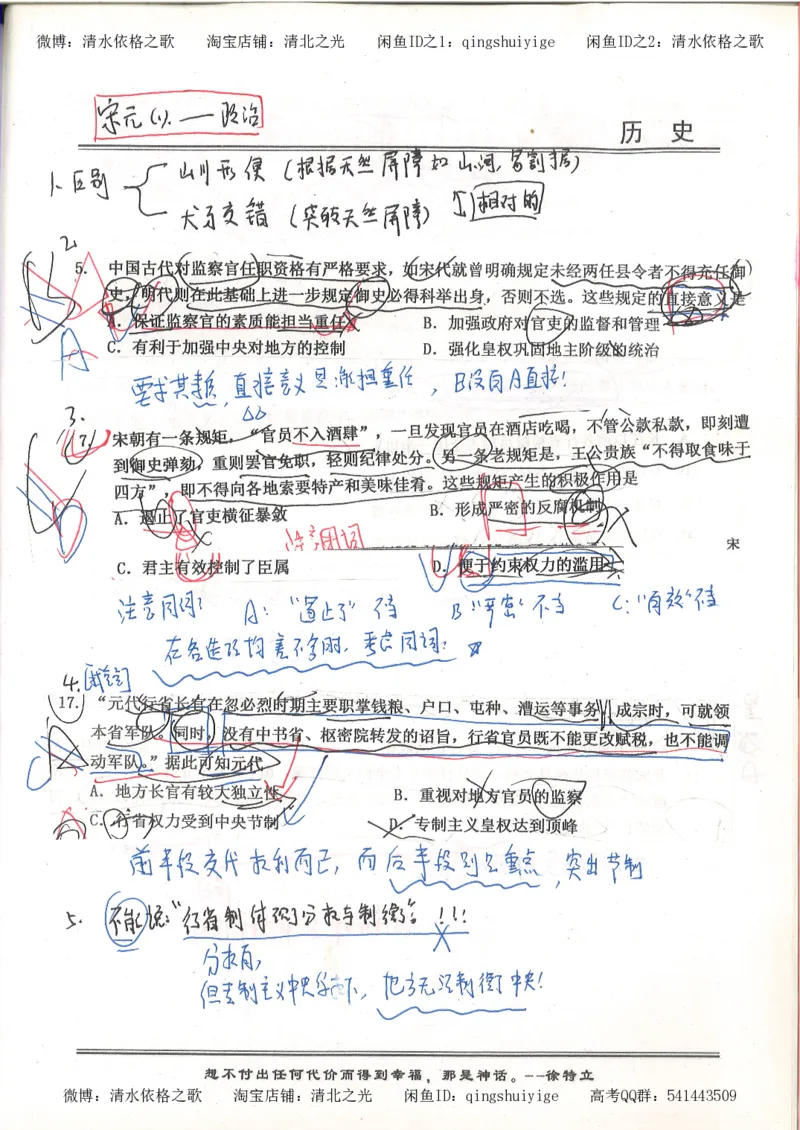 微博：清水依格之歌　　淘宝店铺：清北之光　　闲鱼ID之1：qingshuiyige　　闲鱼ID之2：清水依格之歌
宋元(1).—政治
历 史
1.区别
山川形便（根据天然屏障如山河,易割据）
犬牙交错（突破天然屏障）
相对的
2
5. 中国古代对监察官任职资格有严格要求，如宋代就曾明确规定未经两任县令者不得充任御
史，明代则在此基础上进一步规定御史必得科举出身，否则不选。这些规定的直接意义是
A. 保证监察官的素质能担当重任　　B. 加强政府对官吏的监督和管理
C. 有利于加强中央对地方的控制　　D. 强化皇权巩固地主阶级的统治
A
直接意义是 担重任，B没有A直接!
3.
7. 宋朝有一条规矩，“官员不入酒肆”，一旦发现官员在酒店吃喝，不管公款私款，即刻遭
到御史弹劾，重则罢官免职，轻则纪律处分。另一条老规矩是，王公贵族“不得取食味于
四方”，即不得向各地索要特产和美味佳肴。这些规矩产生的积极作用是
A. 遏止了官吏横征暴敛　　B. 形成严密的反腐机制
注意用词
宋
C. 君主有效控制了臣属　　D. 便于约束权力的滥用
注意用词:　A:“遏止了”不当　B“严密”不当　C:“有效”不当
在各选项均差不多时，考虑用词:
4.
17. “元代行省长官在忽必烈时期主要职掌钱粮、户口、屯种、漕运等事务，成宗时，可就领
本省军队。同时，没有中书省、枢密院转发的诏旨，行省官员既不能更改赋税，也不能调
动军队。”据此可知元代
A. 地方长官有较大独立性　　B. 重视对地方官员的监察
C. 行省权力受到中央节制　　D. 专制主义皇权达到顶峰
前半段交代权利而已，而后半段则是重点，突出节制
5. 不能说:“行省制体现分权与制衡”。!!!
分权有，
但专制主义中央集权下，地方无法制衡中央!
想不付出任何代价而得到幸福，那是神话。--徐特立
微博：清水依格之歌　　淘宝店铺：清北之光　　闲鱼ID：qingshuiyige　　高考QQ群：541443509